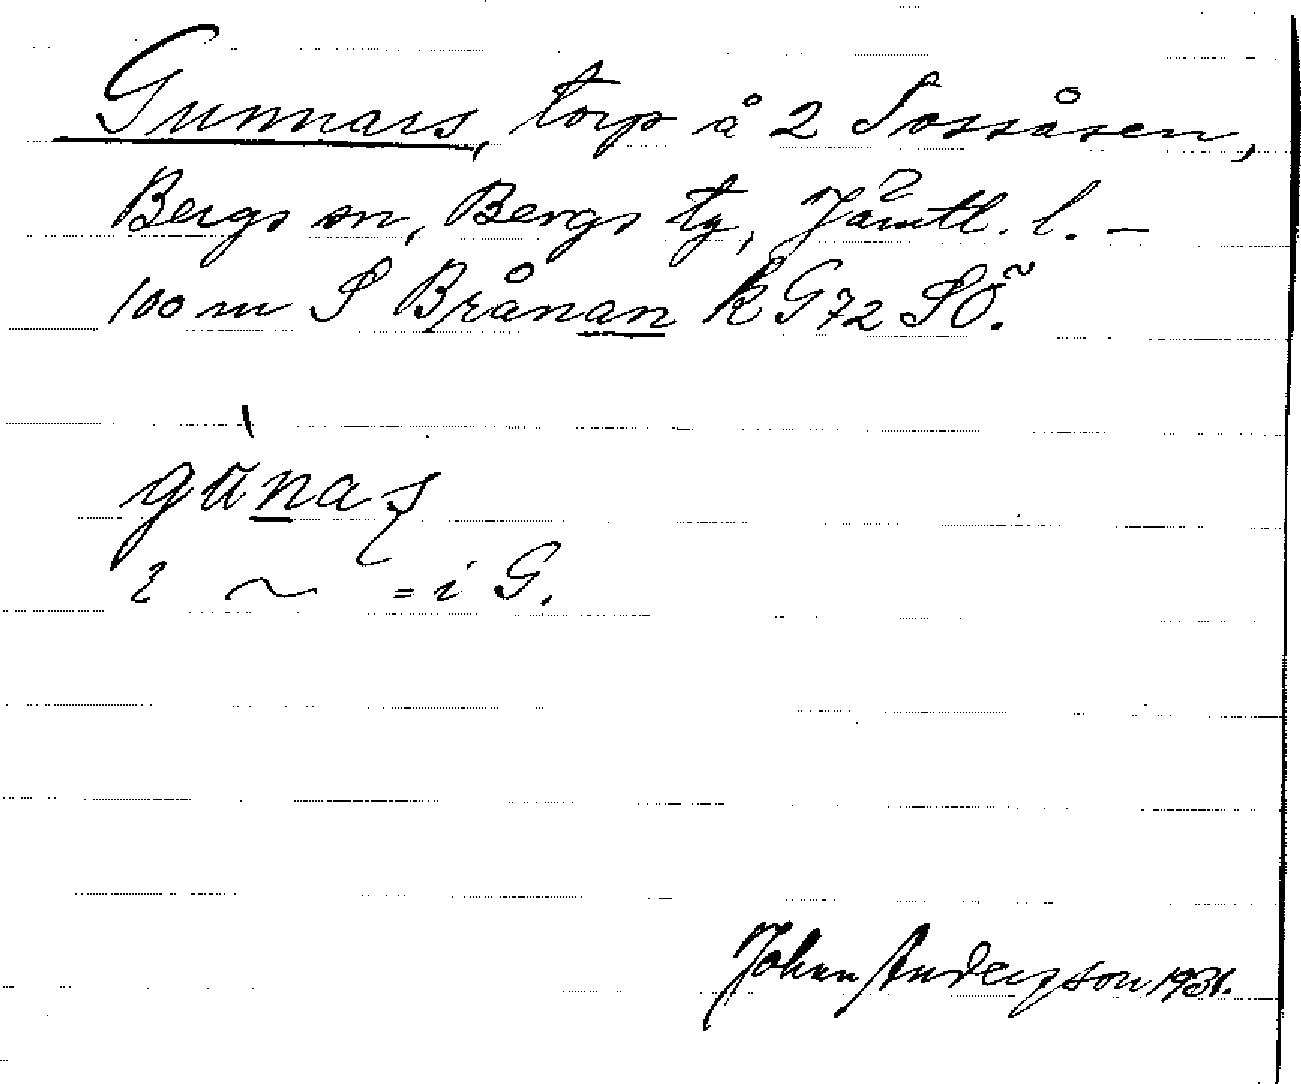 Gunnars, torp å 2 Sossåsen,
Bergs sn, Bergs tg, Jämtl. l. –
100 m S Brånan kG72 SÖ.
i ~ = i G.
Johan Anderson 1931.